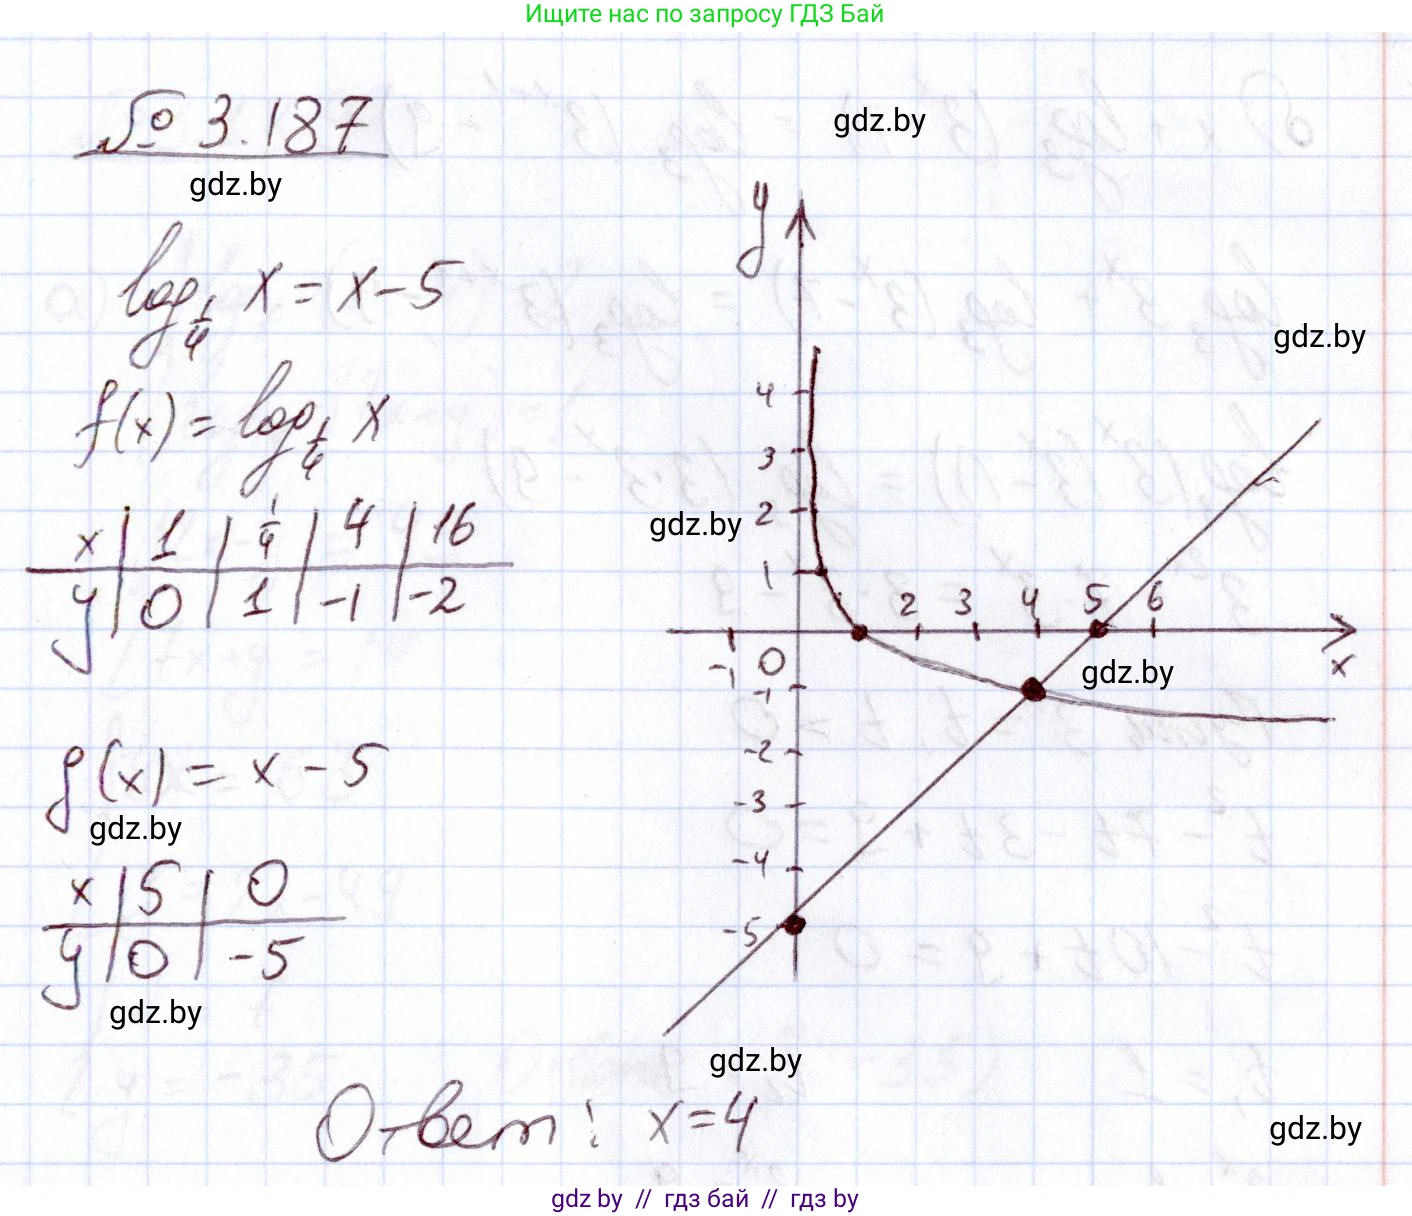 Ищите нас по запросу ГДЗ Бай
№ 3.187
gdz.by
gdz.by
log 1/4 x = x - 5
f(x) = log 1/4 x
x | 1 | 1/4 | 4 | 16
y | 0 | 1 | -1 | -2
g(x) = x - 5
gdz.by
x | 5 | 0
y | 0 | -5
gdz.by
y
gdz.by
4
3
gdz.by
2
1
2 3 4 5 6
-1 0
x
gdz.by
-1
-2
-3
-4
-5
gdz.by
Ответ: x = 4
gdz.by
gdz by // гдз бай // гдз by